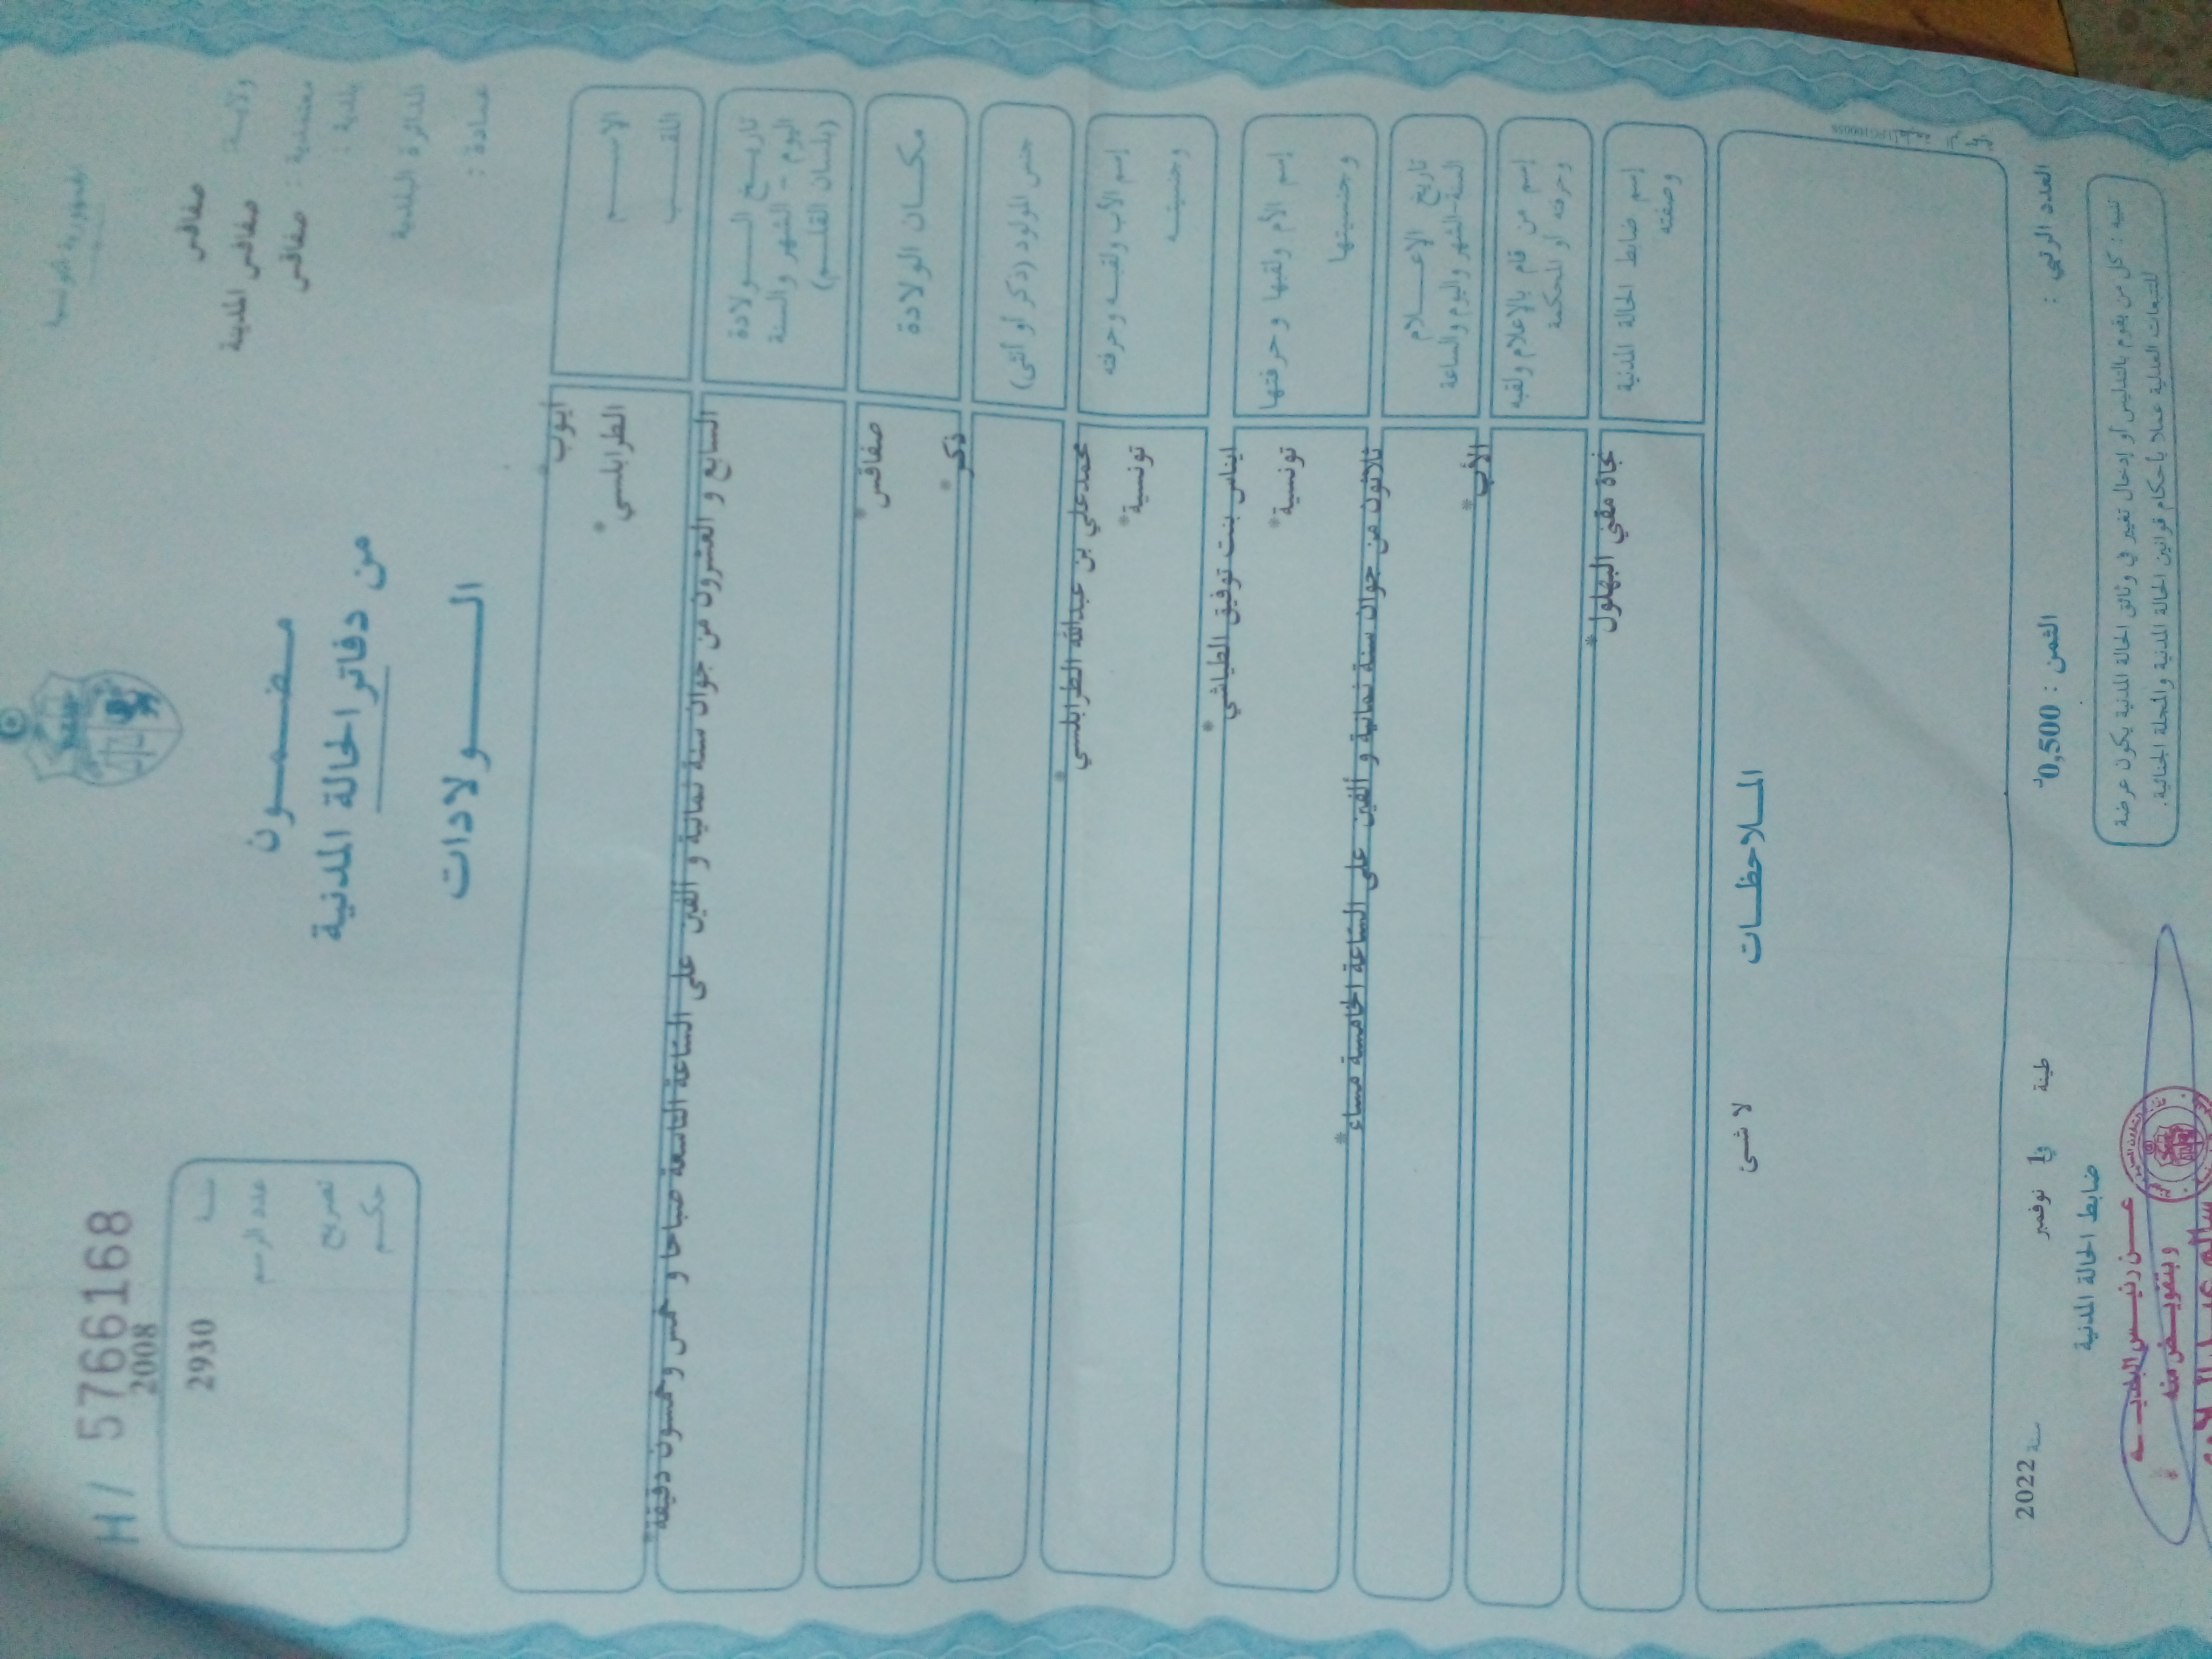 الجمهورية التونسية
ولايــة صفاقس
معتمدية : صفاقس المدينة
بلدية : صفاقس
الدائرة البلدية
عمادة :
H/ 57661168
سنــة 2008
عدد الرسم 2930
تصريح
حكم
مضمون
من دفاتر الحالة المدنية
الولادات
الإسم ايوب
اللقب الطرابلسي*
تاريخ الولادة
اليوم - الشهر والسنة
(بلسان القلم)
السابع و العشرون من جوان سنة ثمانية و ألفين على الساعة التاسعة صباحا و خمس وخمسون دقيقة*
مكان الولادة صفاقس*
جنس المولود (ذكر أو أنثى) ذكر*
إسم الأب ولقبه وحرفته محمدعلي بن عبدالله الطرابلسي*
وجنسيته تونسية*
إسم الأم ولقبها وحرفتها ايناس بنت توفيق الطياشي*
وجنسيتها تونسية*
تاريخ الإعلام
السنة-الشهر واليوم والساعة
ثلاثون من جوان سنة ثمانية و ألفين على الساعة الخامسة مساء*
إسم من قام بالإعلام ولقبه
وحرفته أو المحكمة
الأب*
إسم ضابط الحالة المدنية
وصفته
نجاة مقني البهلول*
الملاحظات
لا شىء
العدد الرتبي :
الثمن : 0,500د
طينة في 1 نوفمبر سنة 2022
ضابط الحالة المدنية
تنبيه : كل من يقوم بالتدليس أو إدخال تغيير في وثائق الحالة المدنية يكون عرضة
للتتبعات العدلية عملا بأحكام قوانين الحالة المدنية والمجلة الجنائية.
عن رئيس البلدية
وبتفويض منه